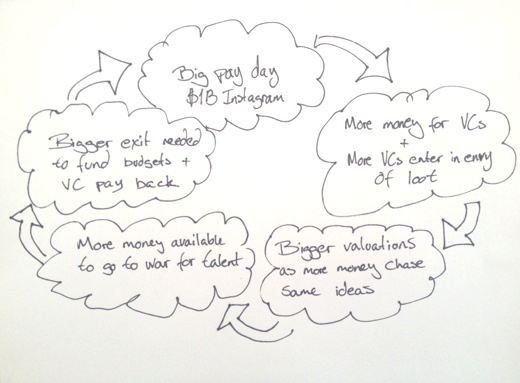 Big pay day
$1B Instagram
More money for VCs
+
More VCs enter in envy
of loot
Bigger valuations
as more money chase
same ideas
More money available
to go to war for talent
Bigger exit needed
to fund budgets +
VC pay back